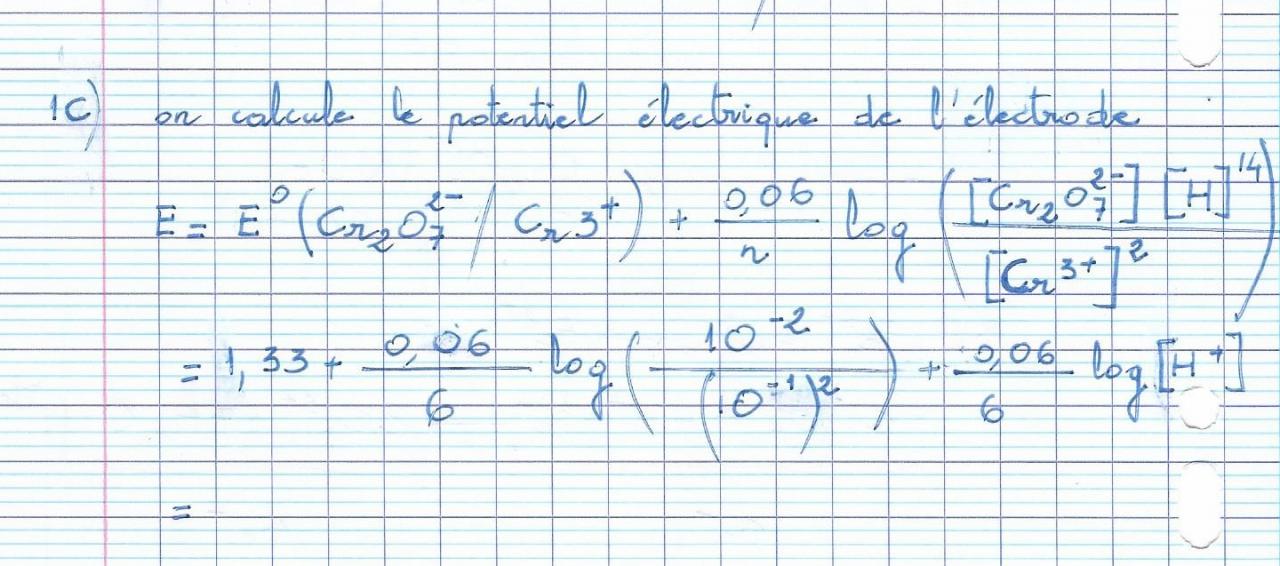 1C) on calcule le potentiel électrique de l'électrode
E = E⁰ (Cr₂O₇²⁻ / Cr3⁺) + 0,06/n log ([Cr₂O₇²⁻] [H]¹⁴ / [Cr³⁺]²)
= 1,33 + 0,06/6 log (10⁻² / (10⁻¹)²) + 0,06/6 log [H⁺]
=